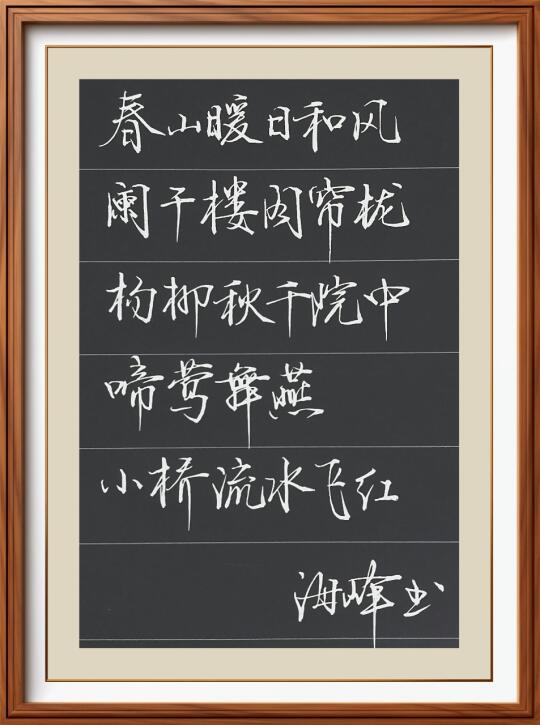 春山暖日和风
阑干楼阁帘栊
杨柳秋千院中
啼莺舞燕
小桥流水飞红
海峰书